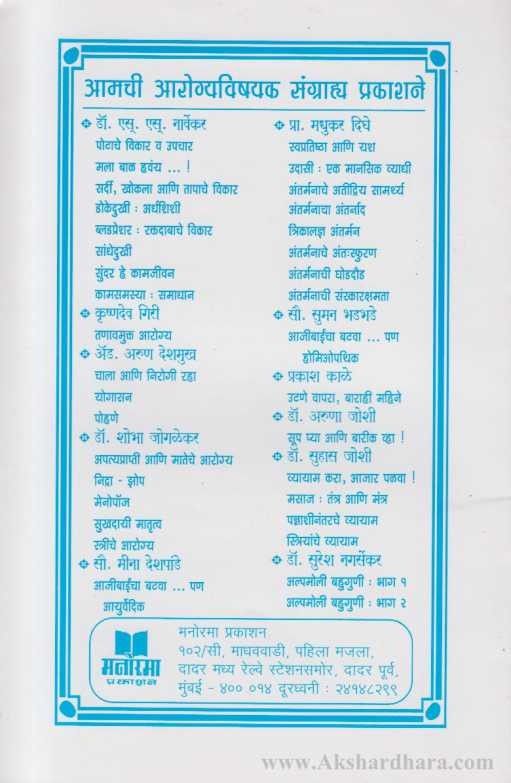 आमची आरोग्यविषयक संग्राह्य प्रकाशने
डॉ. एस्. एस्. नार्वेकर
पोटाचे विकार व उपचार
मला बाळ हवंय ... !
सर्दी, खोकला आणि तापाचे विकार
डोकेदुखी : अर्धशिशी
ब्लडप्रेशर : रक्तदाबाचे विकार
सांधेदुखी
सुंदर हे कामजीवन
कामसमस्या : समाधान
कृष्णदेव गिरी
तणावमुक्त आरोग्य
ॲड. अरुण देशमुख
चाला आणि निरोगी रहा
योगासन
पोहणे
डॉ. शोभा जोगळेकर
अपत्यप्राप्ती आणि मातेचे आरोग्य
निद्रा - झोप
मेनोपॉज
सुखदायी मातृत्व
स्त्रीचे आरोग्य
सौ. मीना देशपांडे
आजीबाईंचा बटवा ... पण
आयुर्वेदिक
प्रा. मधुकर दिघे
स्वप्रतिष्ठा आणि यश
उदासी : एक मानसिक व्याधी
अंतर्मनाचे अतींद्रिय सामर्थ्य
अंतर्मनाचा अंतर्नाद
त्रिकालज्ञ अंतर्मन
अंतर्मनाचे अंतःस्फुरण
अंतर्मनाची घोडदौड
अंतर्मनाची संस्कारक्षमता
सौ. सुमन भडभडे
आजीबाईंचा बटवा ... पण
होमिओपथिक
प्रकाश काळे
उटणे वापरा, बाराही महिने
डॉ. अरुणा जोशी
सूप प्या आणि बारीक व्हा !
डॉ. सुहास जोशी
व्यायाम करा, आजार पळवा !
मसाज : तंत्र आणि मंत्र
पन्नाशीनंतरचे व्यायाम
स्त्रियांचे व्यायाम
डॉ. सुरेश नगर्सेकर
अल्पमोली बहुगुणी : भाग १
अल्पमोली बहुगुणी : भाग २
मनोरमा
प्रकाशन
मनोरमा प्रकाशन
१०२/सी, माधववाडी, पहिला मजला,
दादर मध्य रेल्वे स्टेशनसमोर, दादर पूर्व,
मुंबई - ४०० ०१४ दूरध्वनी : २४१४८२९९
www.Akshardhara.com